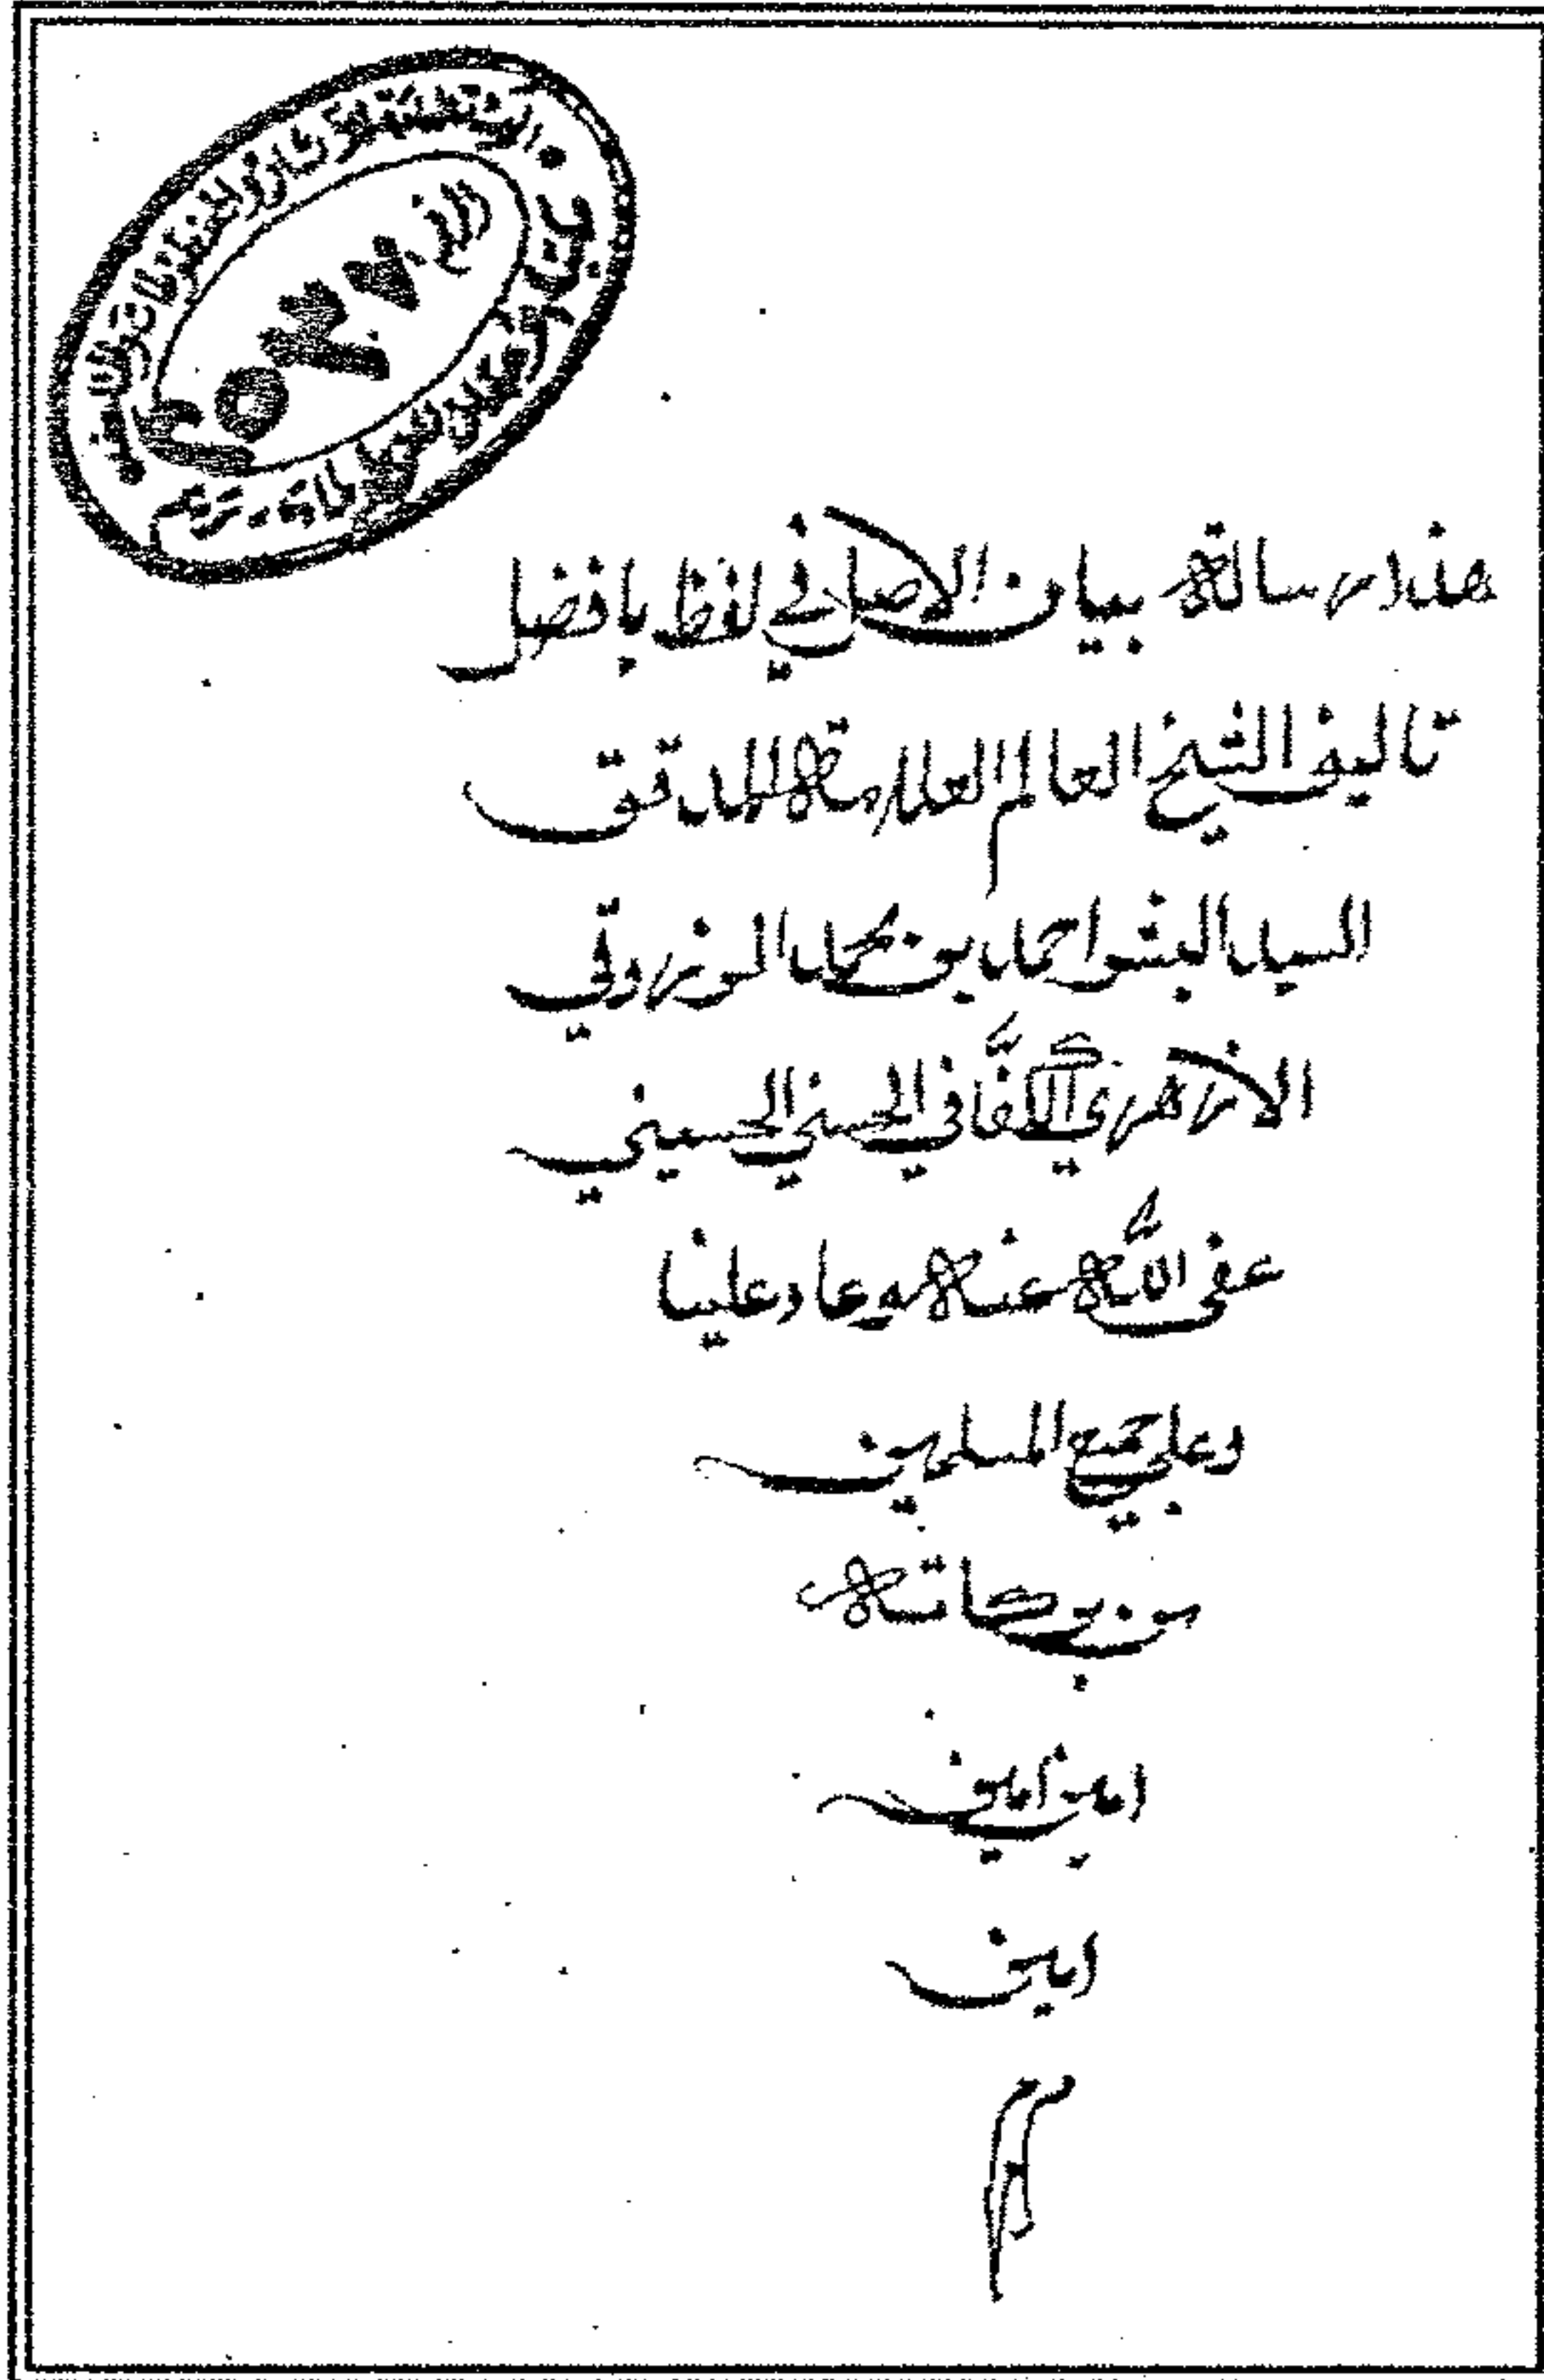 هذا رسالة بيان الاصل في لفظ بافضل
تاليف الشيخ العالم العلامة المدقق
السيد البشر احمد بن محمد المرزوقي
الازهري المكفّافي الحسني الحسيني
عفى الله عنه وعاد علينا
وعلى جميع المسلمين
من بركاته
امين امين
امين